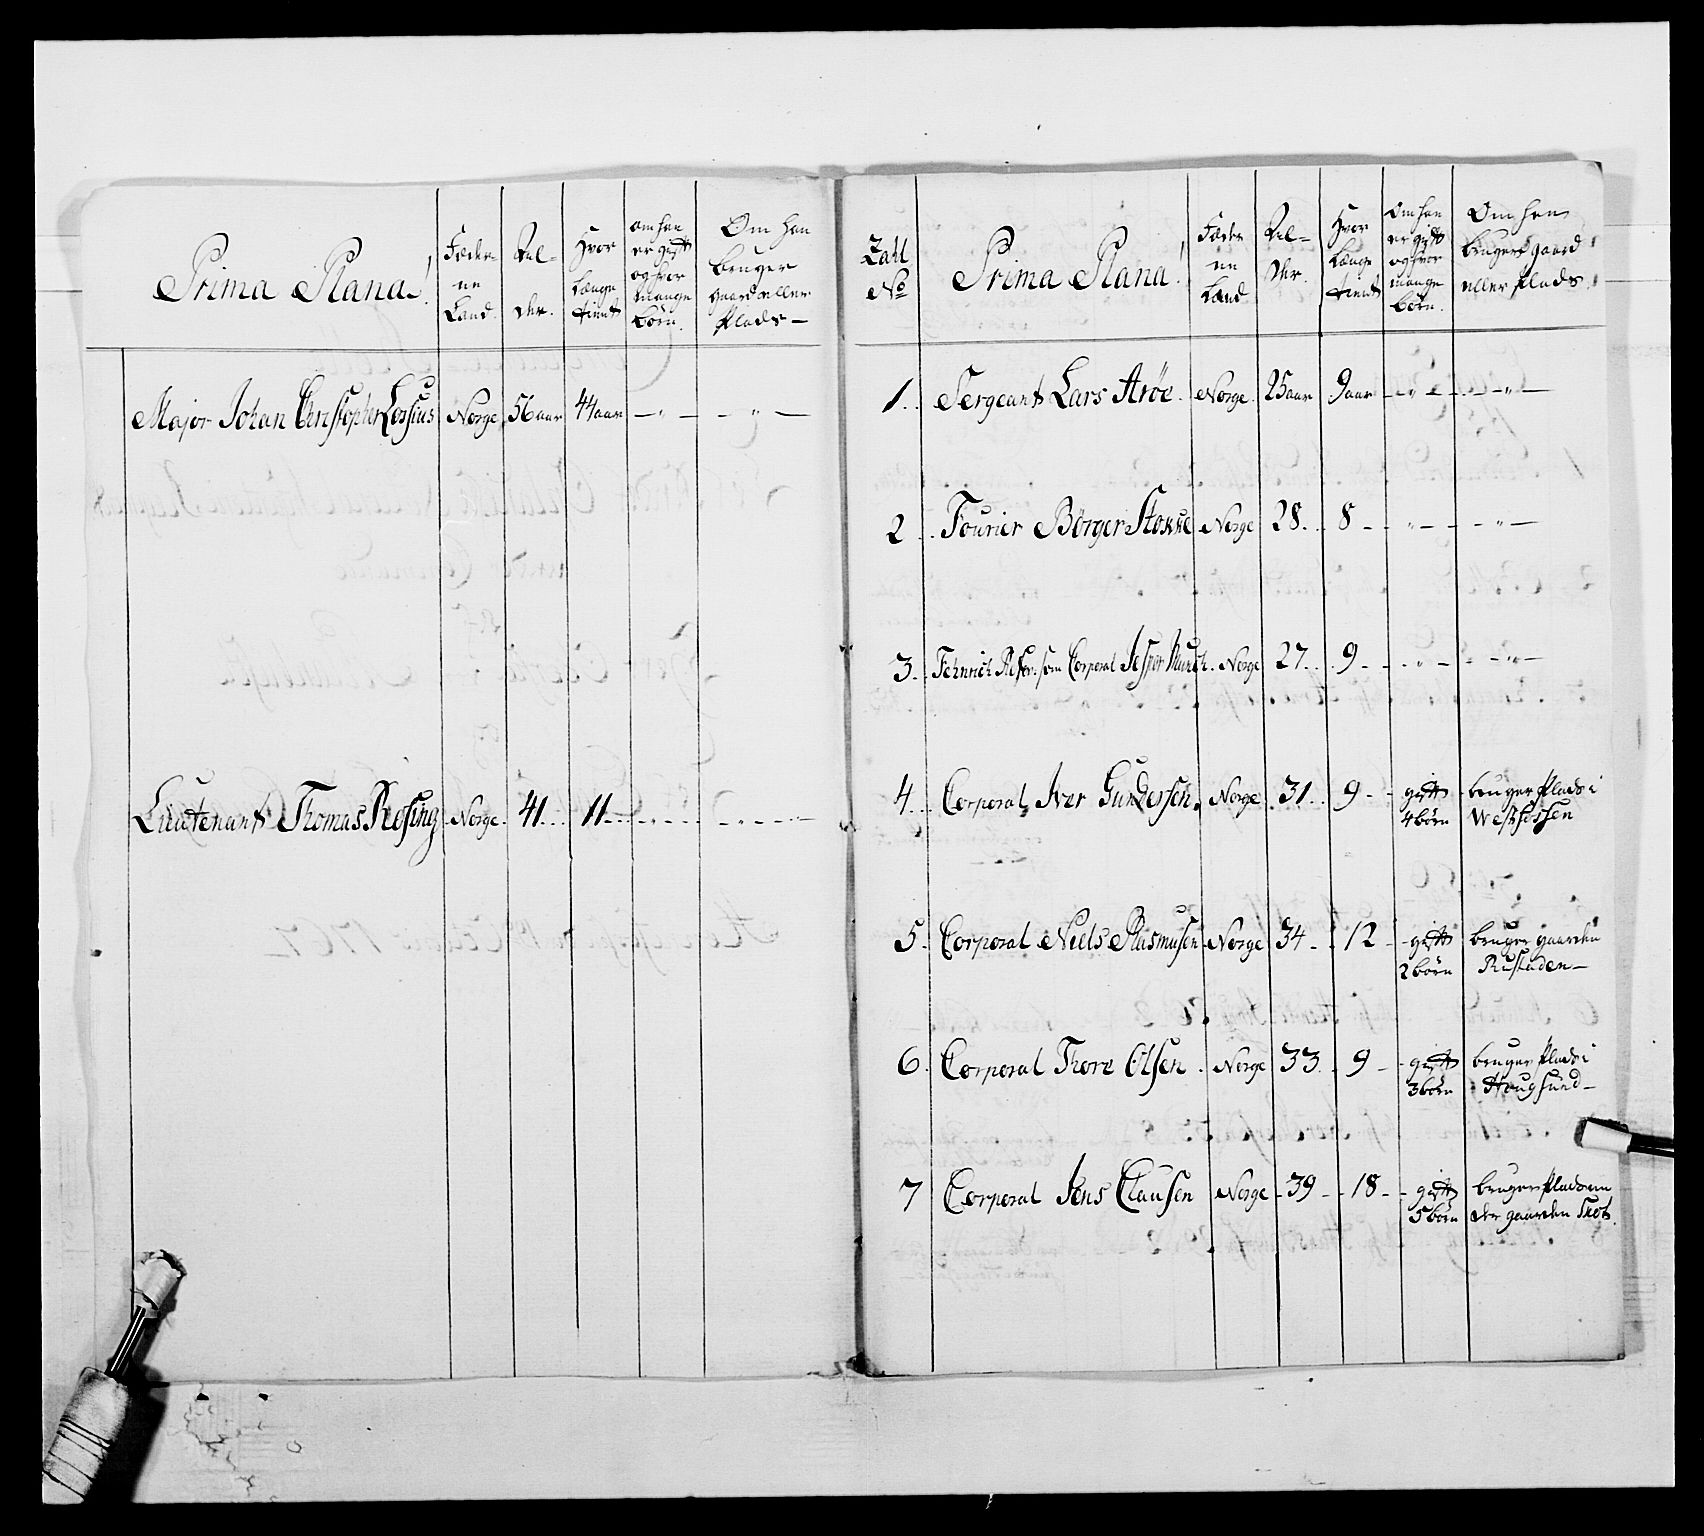 Prima Plana!
Fæder-
ne
Land.
Al-
der.
Hvor
længe
tient
om han
er gift
og hvor
mange
börn.
Om han
bruger
gaard eller
Plads —
Major Johan Christopher Lossius Norge 56 aar 44 aar — " — — " —
Lieutenant Thomas Rosing Norge. 41 11
Zahl
No
Prima Plana!
Fæder
ne
Land
Al-
der.
Hvor
længe
tient
Om han
er gift
og hvor
mange
börn.
Om han
bruger gaard
eller Plads.
1. Sergeant Lars Aröe. Norge. 25 aar 9 aar — " — — " —
2 Fourier Börger Stokke Norge 28. 8 — " — — " —
3. Fehnrich Reser: som Corporal Jesper Munch. Norge 27. 9 — " — — " —
4. Corporal Iver Gundersen. Norge 31. 9 gift bruger Plads i
4 börn Westfossen
5. Corporal Niels Rasmusen Norge 34 12 gift bruger gaarden
2 börn Rustaden —
6. Corporal Thore Olsen Norge 33. 9 gift bruger Plads i
3 börn Hougsund —
7 Corporal Jens Clausen Norge 39 18 gift bruger Plads un
5 börn der gaarden